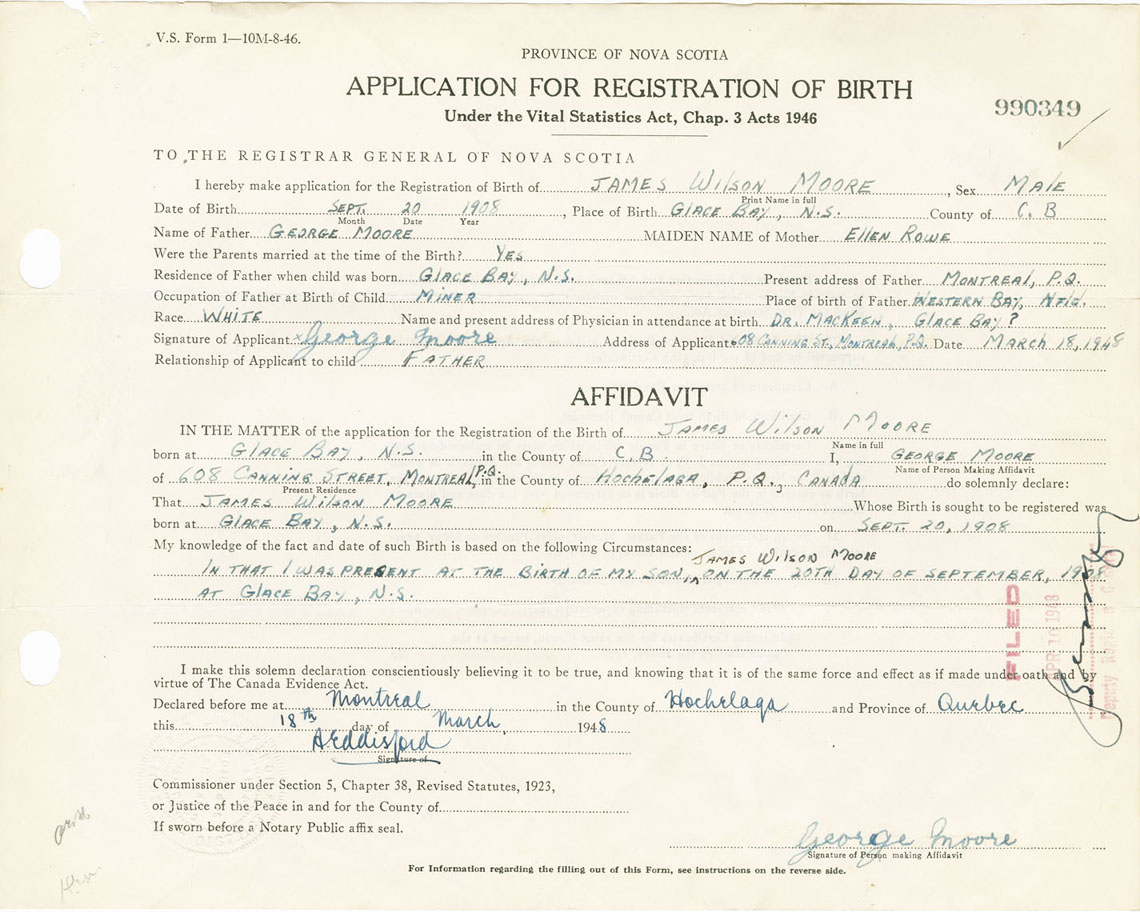 V.S. Form 1—10M-8-46.
PROVINCE OF NOVA SCOTIA
APPLICATION FOR REGISTRATION OF BIRTH
990349
Under the Vital Statistics Act, Chap. 3 Acts 1946
TO THE REGISTRAR GENERAL OF NOVA SCOTIA
I hereby make application for the Registration of Birth of JAMES WILSON MOORE, Sex MALE
Print Name in full
Date of Birth SEPT. 20 1908, Place of Birth GLACE BAY, N.S. County of C. B
Month Date Year
Name of Father GEORGE MOORE MAIDEN NAME of Mother ELLEN ROWE
Were the Parents married at the time of the Birth? YES
Residence of Father when child was born GLACE BAY, N.S. Present address of Father MONTREAL, P.Q.
Occupation of Father at Birth of Child MINER Place of birth of Father WESTERN BAY, NFLD.
Race WHITE Name and present address of Physician in attendance at birth DR. MACKEEN, GLACE BAY?
Signature of Applicant x George Moore Address of Applicant 608 CANNING ST., MONTREAL, P.Q. Date MARCH 18, 1948
Relationship of Applicant to child FATHER
AFFIDAVIT
IN THE MATTER of the application for the Registration of the Birth of JAMES WILSON MOORE
Name in full
born at GLACE BAY, N.S. in the County of C. B. I, GEORGE MOORE
Name of Person Making Affidavit
of 608 CANNING STREET, MONTREAL, P.Q. in the County of HOCHELAGA, P.Q., CANADA do solemnly declare:
Present Residence
That JAMES WILSON MOORE Whose Birth is sought to be registered was
born at GLACE BAY, N.S. on SEPT. 20, 1908
My knowledge of the fact and date of such Birth is based on the following Circumstances:
IN THAT I WAS PRESENT AT THE BIRTH OF MY SON, JAMES WILSON MOORE, ON THE 20TH DAY OF SEPTEMBER, 1908
AT GLACE BAY, N.S.
FILED
APR 10 1948
I make this solemn declaration conscientiously believing it to be true, and knowing that it is of the same force and effect as if made under oath and by
virtue of The Canada Evidence Act.
Declared before me at Montreal in the County of Hochelaga and Province of Quebec
this 18th day of March, 1948
Signature of
Commissioner under Section 5, Chapter 38, Revised Statutes, 1923,
or Justice of the Peace in and for the County of
If sworn before a Notary Public affix seal.
George Moore
Signature of Person making Affidavit
For Information regarding the filling out of this Form, see instructions on the reverse side.